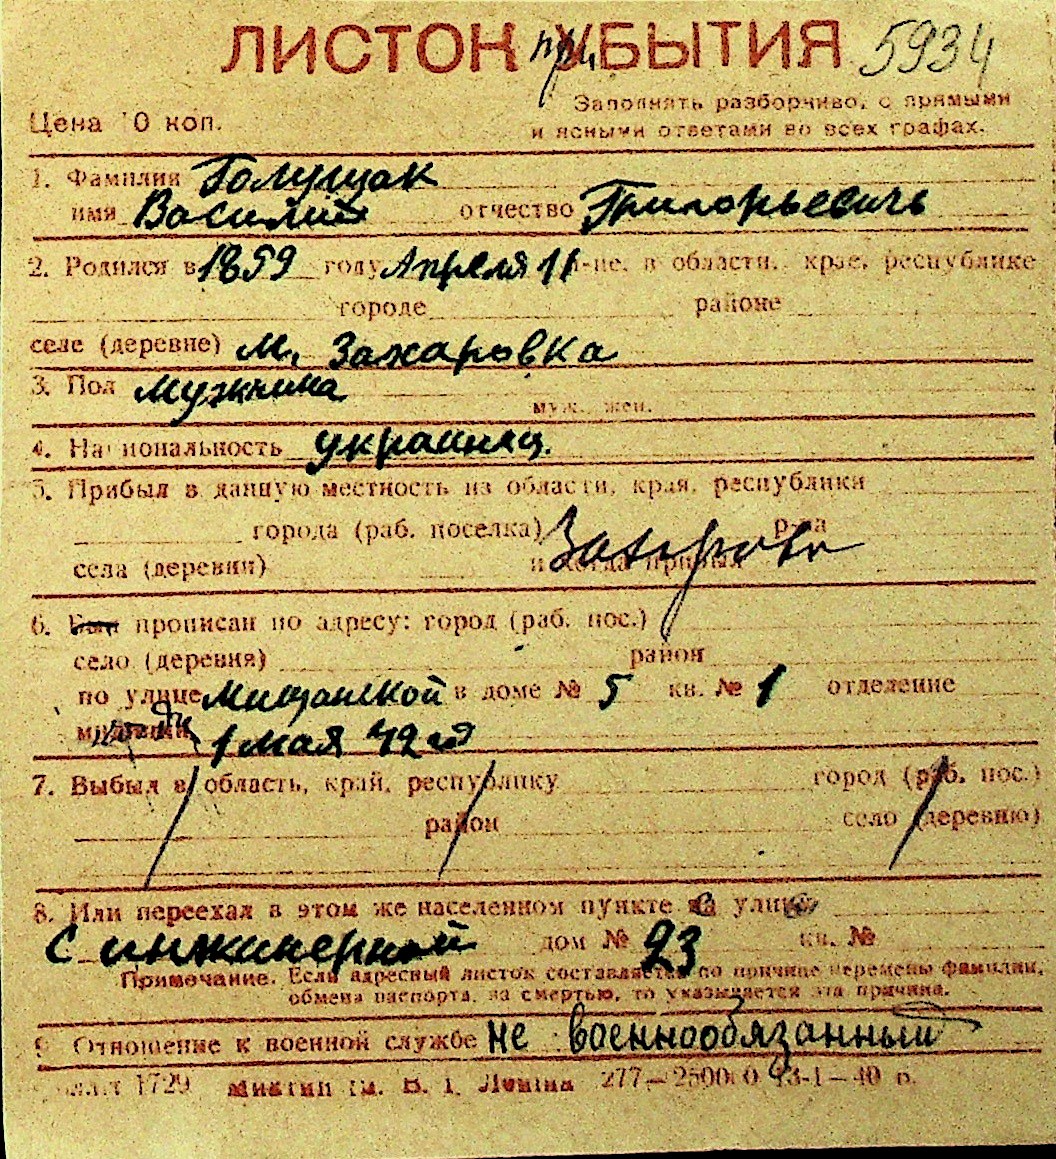 ЛИСТОК при УБЫТИЯ 5934
Цена 10 коп. Заполнять разборчиво, с прямыми
и ясными ответами во всех графах.
1. Фамилия Голущак
имя Василий отчество Григорьевичь
2. Родился в 1859 году Апреля 11 в области, крае, республике
городе районе
селе (деревне) М. Захаровка
3. Пол мужчина
муж. жен.
4. Национальность украинец.
5. Прибыл в данную местность из области, края, республики
города (раб. поселка) р-на
села (деревни) и когда прибыл
6. Был прописан по адресу: город (раб. пос.)
село (деревня) район
по улице Мищанской в доме № 5 кв. № 1 отделение
милиции 1 мая 42 год
7. Выбыл в область, край, республику город (раб. пос.)
район село (деревню)
8. Или переехал в этом же населенном пункте на улицу
с инжинерной дом № 23 кв. №
Примечание. Если адресный листок составляется по причине перемены фамилии,
обмена паспорта, за смертью, то указывается эта причина.
9. Отношение к военной службе Не военнообязанный
1729 им. В. І. Леніна 277—